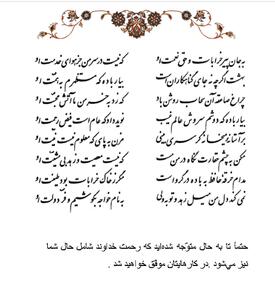 به جان پیر خرابات و حق نعمت او که نیست در سر من جز هوای خدمت او
بهشت اگرچه نه جای گناهکاران است بیار باده که مستظهرم به همت او
چراغ صاعقه آن سحاب روشن باد که زد به خرمن ما آتش محبت او
بیار باده که دوشم سروش عالم غیب نوید داد که عام است فیض رحمت او
بر آستانه میخانه گر سری بینی مزن به پای که معلوم نیست نیت او
مکن به چشم حقارت نگاه در من مست که نیست معصیت و زهد بی مشیت او
مدام خرقه حافظ به باده در گرو است مگر ز خاک خرابات بود طینت او
نمی کند دل من میل زهد و توبه ولی به نام خواجه بکوشیم و فر دولت او
حتماً تا به حال متوّجه شده‌اید که رحمت خداوند شامل حال شما
نیز می‌شود .در کارهایتان موفق خواهید شد .